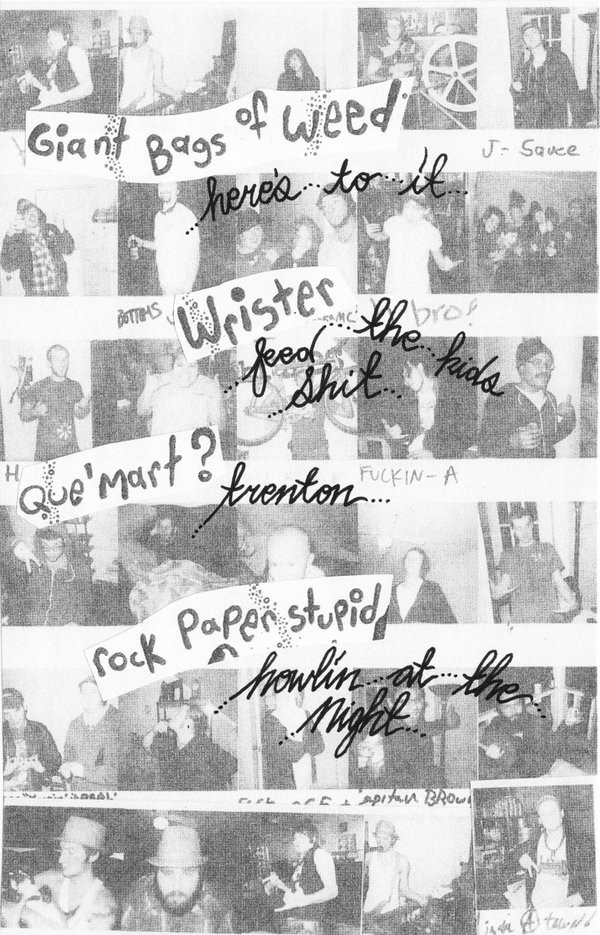 Giant Bags of Weed
J- Sauce
here's... to... it...
BOTTOMS
Wrister
bro!
feed... the... kids
shit...
Que'mart?
FUCKIN-A
trenton...
rock Paper stupid
howlin... at... the...
Night...
BROWN